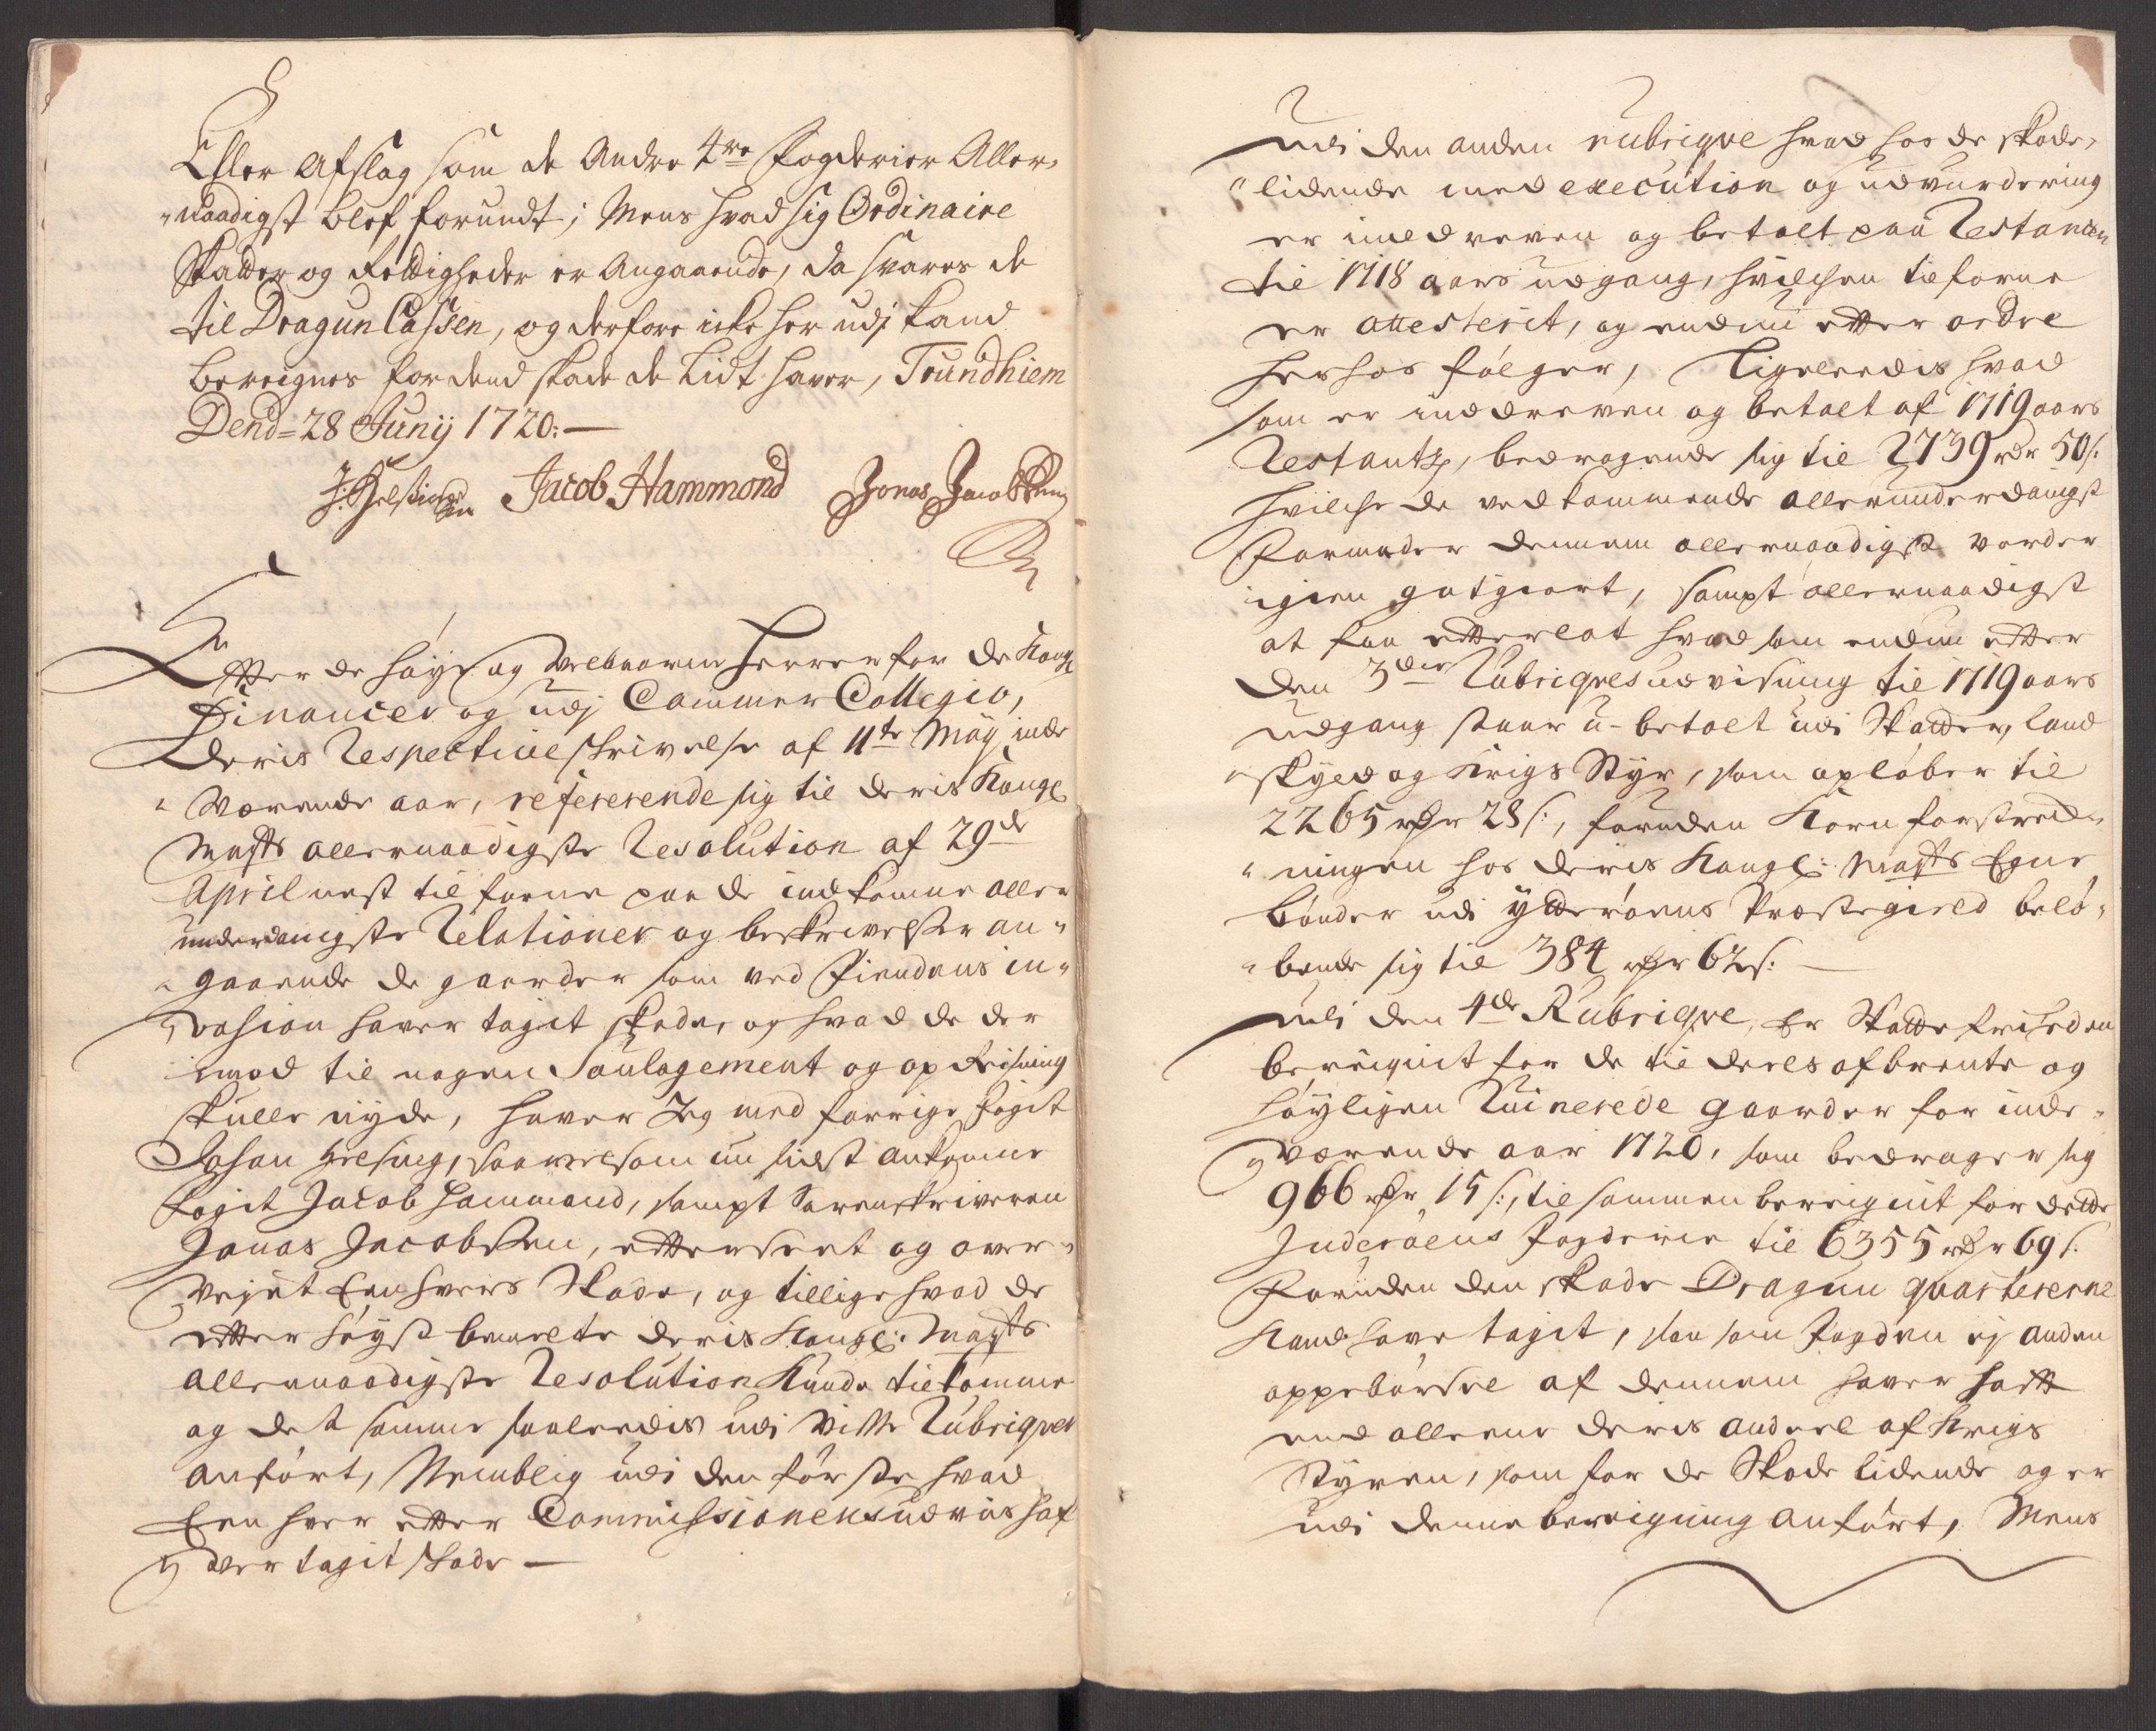 Eller Afslag som de Andre 4re Fogderier Aller,
„naadigst blef forundt; Mens hvad sig Ordinaire
Skatter og Rettigheder er Angaaende, da svares de
til Dragun Cassen, og derfore icke her udj kand
bereignes for dend skade de Lidt haver, Trundhiem
Dend = 28 Junij 1720:—
Jacob Hammond Jonas Jacobsen
Efter de høye og Velbaarne Herrer for de Kongl
Financer og udj Cammer Collegio,
Deris Respective skrivelse af 11te Maij inde
„værende aar, refererende sig til deris Kongl
Maÿts allernaadigste Resolution af 29de
April nest tilforne paa de indkomne aller
underdanigste Relationer og beskrivelser an„
„gaaende de gaarder som ved Fiendens in„
„vasion haver tagit skade, og hvad de der
imod til nogen Soulagement og opreisning
skulle nyde, haver Jeg med forrige Fogit
Johan Helsing, saavelsom nu sidst ankomne
Fogit Jacob Hammond, sampt Sorenskriveren
Jonas Jacobsen, efterseet og over„
„vejet Een hvers Skade, og tillige hvad de
efter høyst bemelte deris Kongl: Maÿts
allernaadigste Resolution Kunde tilkomme
og det samme saaleedis udi visse Rubriqver
anført, Nemblig udi den første hvad
Een hver efter Commissionens udviis haf„
„ver tagit skade —
Udi den anden rubriqve hvad hos de skade,
„lidende med execution og udvurdering
er inddreven og betalt paa Restancen
til 1718 aars udgang, hvilchen tilforne
er attesterit, og endnu efter ordre
herhos følger, Ligeleedis hvad
som er inddreven og betalt af 1719 aars
Restantz, bedragende sig til 2739 rdr 50 s.
hvilche de vedkommende allerunderdanigst
formoder dennem allernaadigst vorder
igien gotgiort, sampt allernaadigst
at faa efterlat hvad som endnu efter
den 3die Rubriqves udvisning til 1719 aars
udgang staar u-betalt udi Skatter, land
„skyld og Krigs Styr, som opløber til
2265 rdr 28 s:, foruden Korn forstrech„
„ningen hos deris Kongl: Maÿts Egne
bønder udi Ytterøens Præstegield belø„
„bende sig til 384 rdr 62 s: —
Udi den 4de Rubriqve, Er Skattefriheden
bereignit for de til deels afbrente og
høyligen Ruinerede gaarder for inde„
„værende aar 1720, som bedrager sig
966 rdr 15 s:, tilsammen bereignit for dette
Inderøens Fogderie til 6355 rdr 69 s.
Foruden den skade Dragun qvartererne
Kand have tagit, saa som Fogden ej anden
oppebørsel af dennem haver haft
end alleene deris andeel af Krigs
Styren, som for de Skade lidende og er
udi denne bereigning anført, Mens